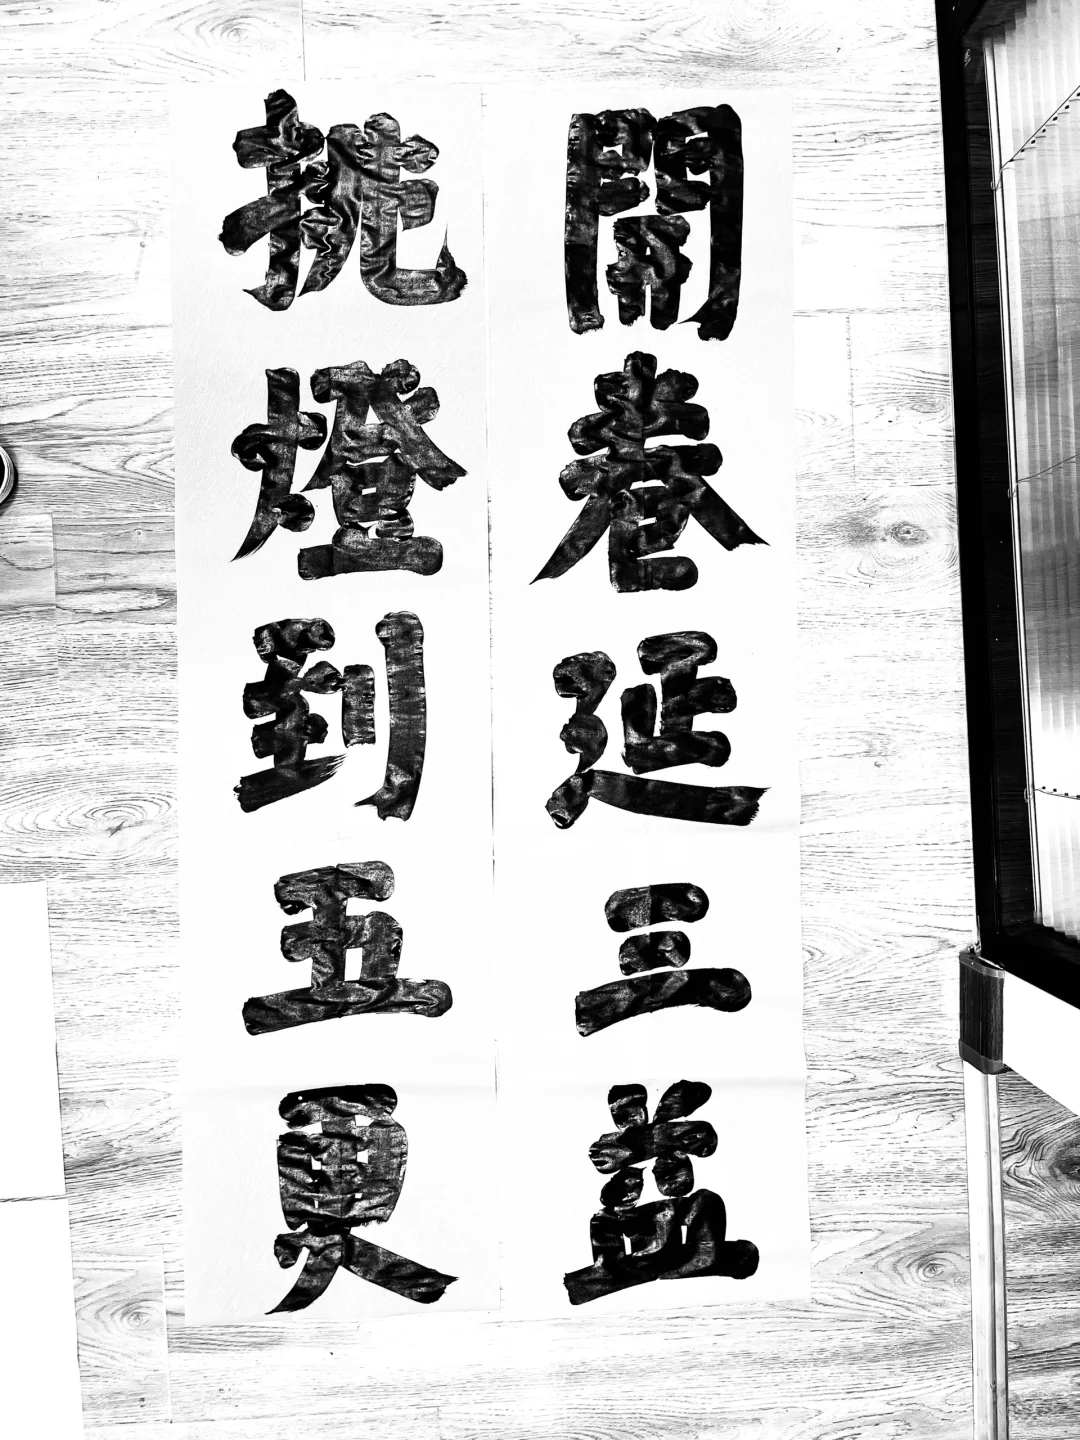 開卷延三益
挑燈到五更